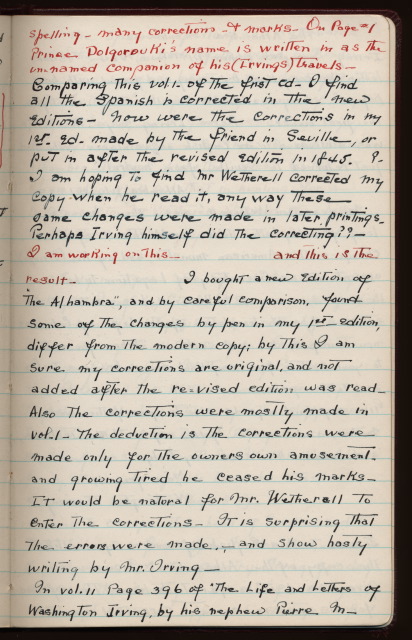 spelling - many corrections - & marks - On Page #1
Prince Dolgorouki's name is written in as the
un-named companion of his (Irvings) travels -
Comparing this vol. 1. of the first ed - I find
all the Spanish is corrected in the new
Editions - now were the corrections in my
1st. Ed. made by the friend in Seville, or
put in after the revised Edition in 1848. ?-
I am hoping to find Mr Wetherell corrected my
copy when he read it, any way these
same changes were made in later printings.
Perhaps Irving himself did the correcting??-
I am working on this - and this is the
result - I bought a new Edition of
"The Alhambra", and by careful comparison, found
some of the changes by pen in my 1st Edition,
differ from the modern copy; by this I am
sure my corrections are original, and not
added after the re=vised edition was read -
Also the corrections were mostly made in
vol. 1 - The deduction is the corrections were
made only for the owners own amusement.
and growing tired he ceased his marks -
IT would be natural for Mr. Wetherell to
Enter the corrections - IT is surprising that
the errors were made, - and show hasty
writing by Mr. Irving -
In vol. 11 Page 396 of "The Life and Letters of
Washington Irving, by his nephew Pierre M -